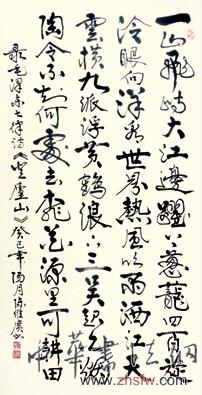 一山飛峙大江邊躍上葱蘢四百旋
冷眼向洋看世界熱風吹雨洒江天
雲橫九派浮黃鶴浪下三吳起白煙
陶令不知何處去桃花源里可耕田
毛澤東七律詩《登廬山》癸巳年陽月陳維廣
中華書法網
www.zhsfw.com